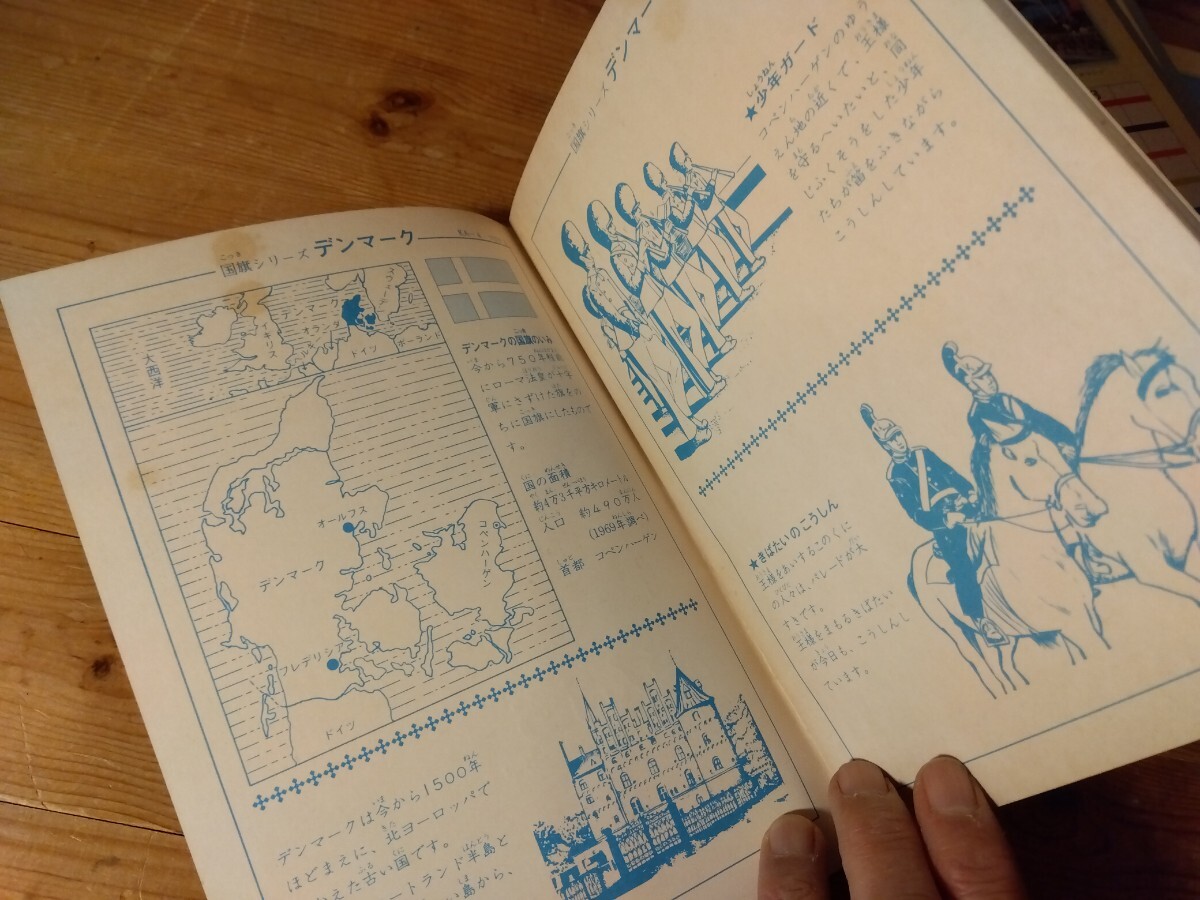 国旗シリーズ デンマーク
大西洋
イギリス
デンマーク
オランダ
ドイツ
ポーランド
オールフス
デンマーク
コペンハーゲン
フレデリシア
ドイツ
デンマークの国旗のいみ
今から750年程前
にローマ法皇が十字
軍にさずけた旗をの
ちに国旗にしたもので
す。
国の面積
約4万3千平方キロメートル
人口 約490万人
(1969年調べ)
首都 コペンハーゲン
デンマークは今から1500年
ほどまえに、北ヨーロッパで
えた古い国です。
ートランド半島と
い島から、
国旗シリーズ デンマー
★少年ガード
コペンハーゲンのゆう
えん地の近くで、王様
を守るへいたいと、同
じふくそうをした少年
たちが笛をふきながら
こうしんしています。
★きばたいのこうしん
王様をあいするこのくに
の人々は、パレードが大
すきです。
王様をまもるきばたい
が今日も、こうしんし
ています。